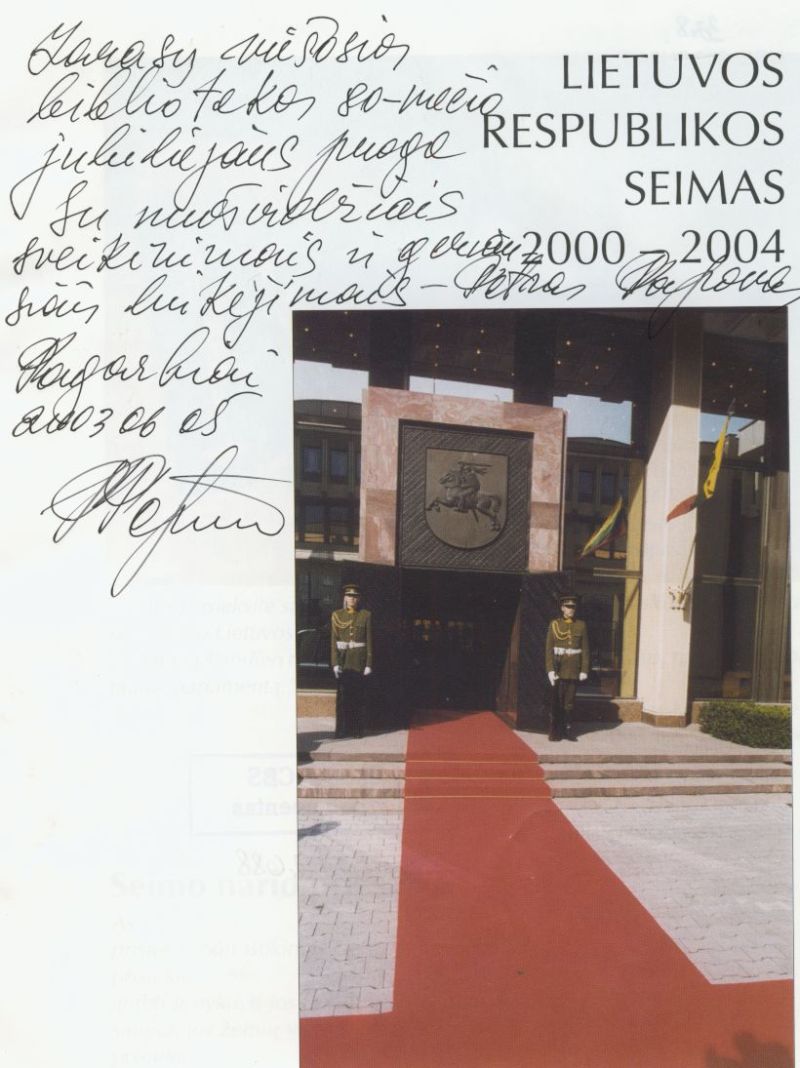 Zarasų viešosios
bibliotekos 80-mečio
jubiliejaus proga
Su nuoširdžiais
sveikinimais ir geriau-
siais linkėjimais – Petras Papovas
Pagarbiai
2003 06 05
LIETUVOS
RESPUBLIKOS
SEIMAS
2000 – 2004